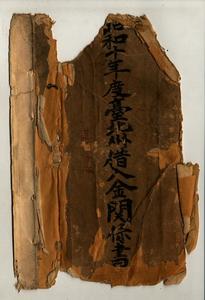 昭和十年度臺北州借入金關係書